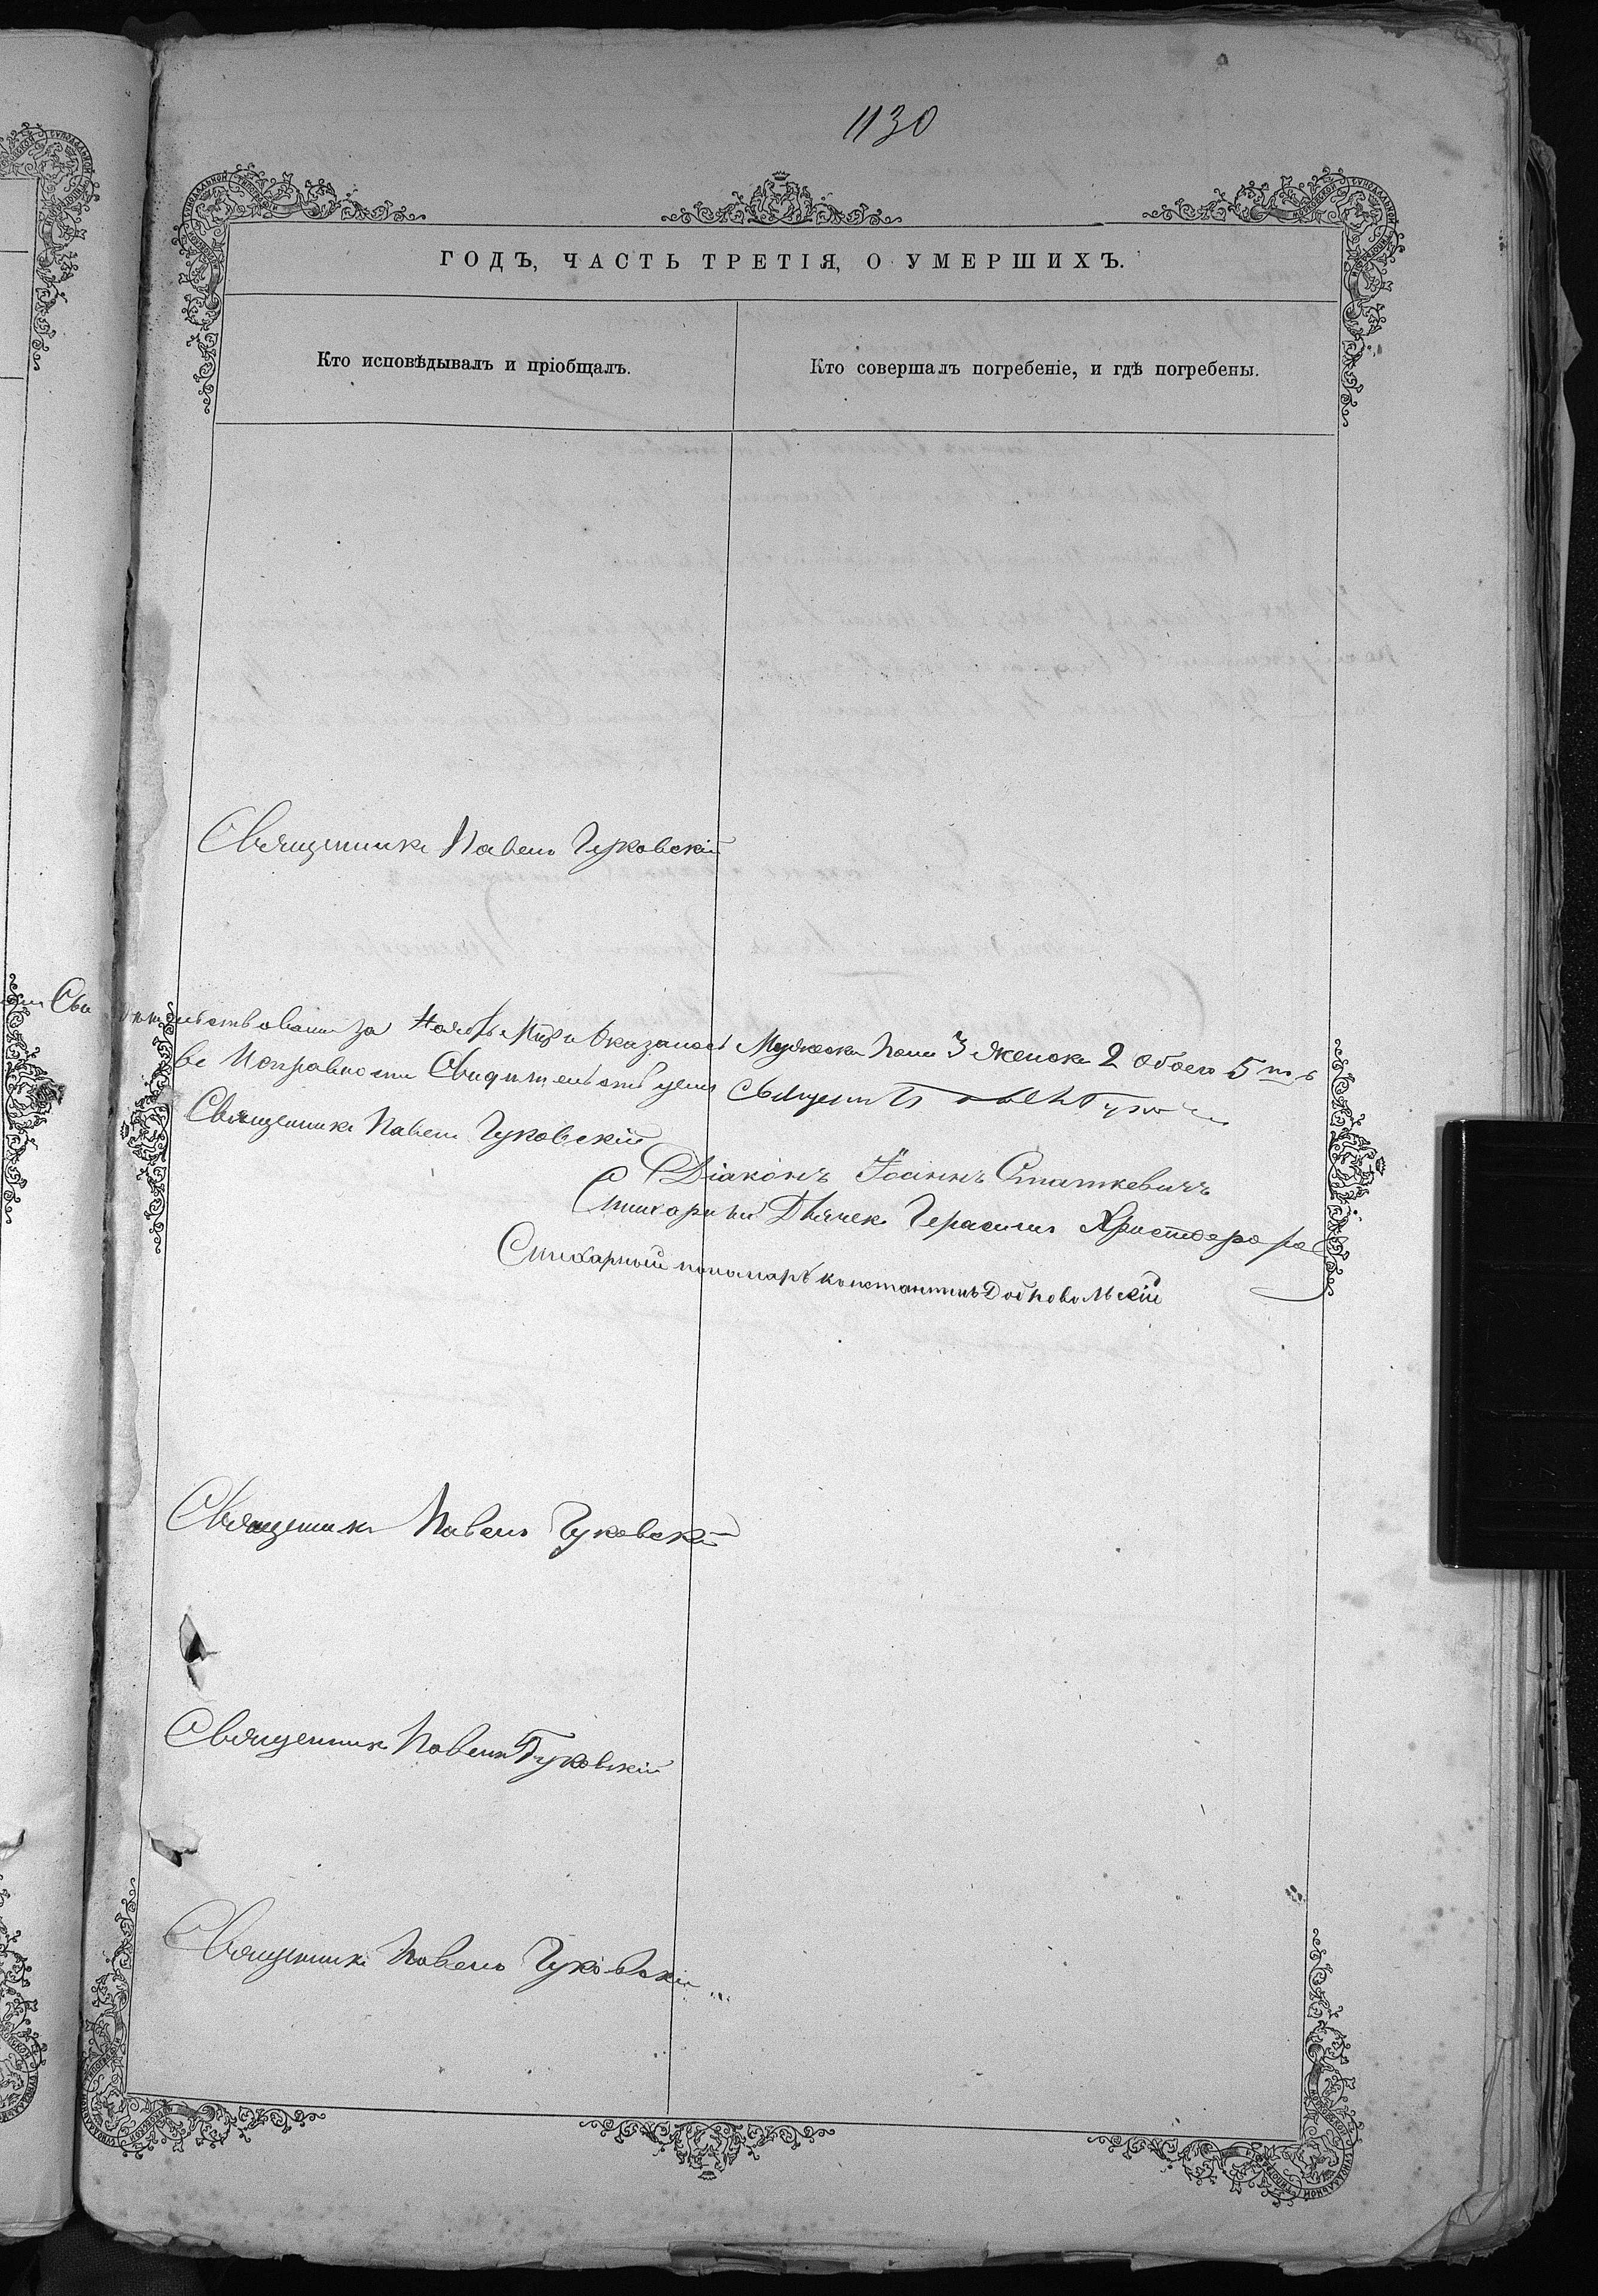 1130
ГОДЪ, ЧАСТЬ ТРЕТІЯ, О УМЕРШИХЪ.
Кто исповѣдывалъ и пріобщалъ.
Кто совершалъ погребеніе, и гдѣ погребены.
Священникъ Павелъ Чуковскій
за Ноябрь Мц҃ъ и Оказалось Мужеска пола 3 Женска 2 Обоего 5ть
Въ Исправности Свидѣтельствуемъ Священ
Священникъ Павелъ Чуковскій
Діаконъ Іоаннъ Статкевичъ
Стихарный Дьячекъ Герасимъ Христофоров
Стихарный пономарь константинъ Добровольскій
Священникъ Павелъ Чуковскій
Священникъ Павелъ Чуковскій
Священникъ Павелъ Чуковскій